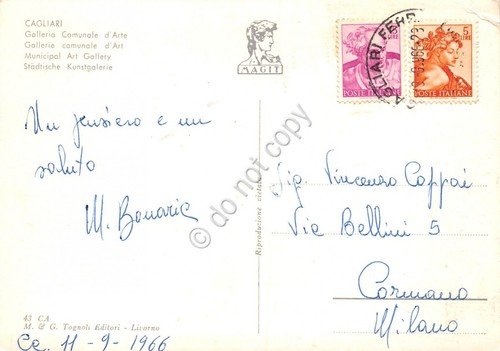 CAGLIARI
Galleria Comunale d'Arte
Gallerie comunale d'Art
Municipal Art Gallery
Städtische Kunstgalerie
MAGIT
LIRE
5
LIRE
POSTE ITALIANE
POSTE ITALIANE
CAGLIARI FERR
Un pensiero e un
saluto
M. Bonaria
Sig Vincenzo Coppai
Via Bellini 5
Cormano
Milano
Riproduzione vietata
do not copy
43 CA
M. & G. Tognoli Editori - Livorno
Ca. 11-9-1966